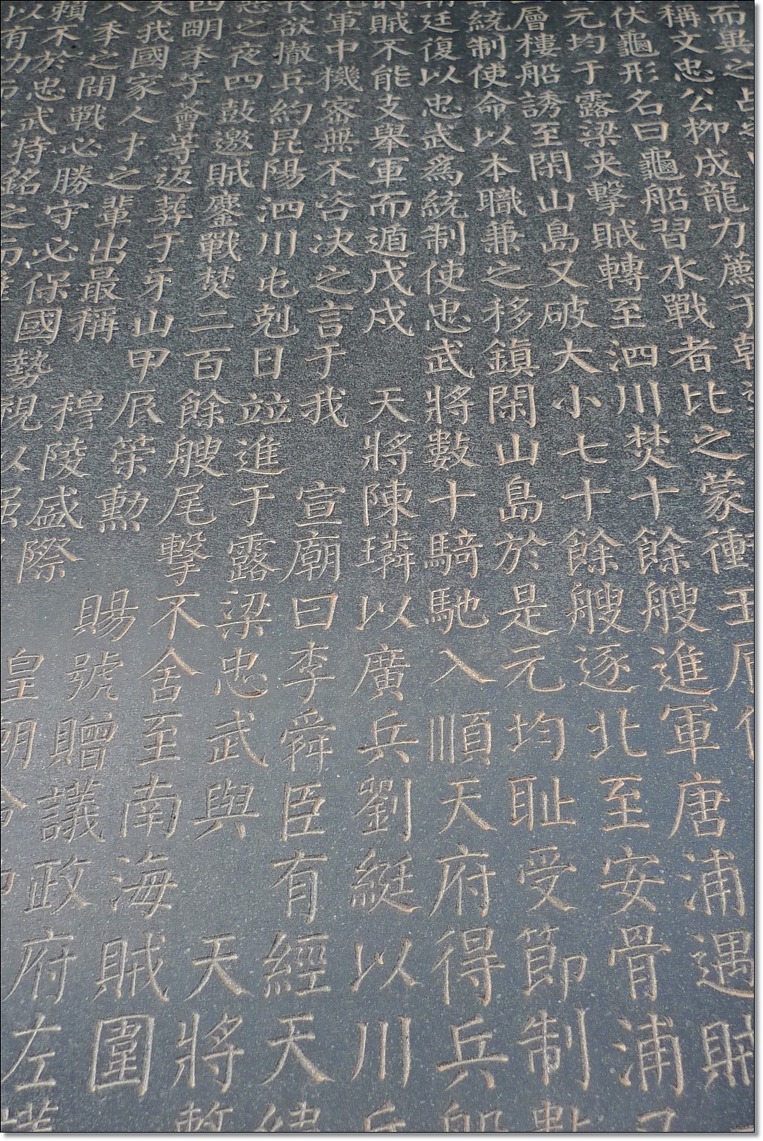 而異之占
稱文忠公柳成龍力薦于朝
伏龜形名曰龜船習水戰者比之蒙衝壬辰
元均于露梁夹擊賊轉至泗川焚十餘艘進軍唐浦遇賊
層樓船誘至閑山島又破大小七十餘艘逐北至安骨浦又
統制使命以本職兼之移鎮閑山島於是元均恥受節制數
廷復以忠武爲統制使忠武將數十騎馳入順天府得兵船
賊不能支擧軍而遁戊戌 天將陳璘以廣兵劉綎以川兵
軍中機密無不咨决之言于我 宣廟曰李舜臣有經天緯
欲撤兵約昆陽泗川屯剋日竝進于露梁忠武與 天將暫
之夜四鼓邀賊鏖戰焚二百餘艘尾擊不舍至南海賊圍
四明季子薈等返葬于牙山甲辰策勳 賜號贈議政府左議
我國家人才之輩出最稱 穆陵盛際 皇朝
季之間戰必勝守必保國勢視以强
賴不於忠武特銘之而
以有力